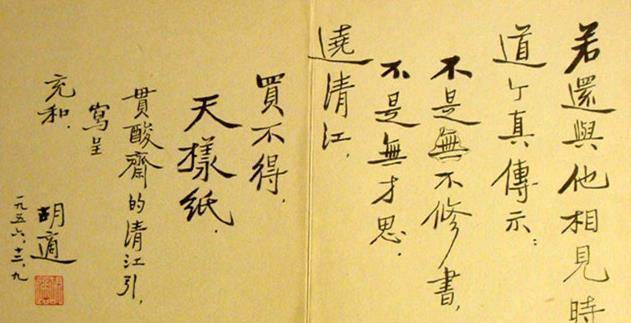 若還與他相見時
道个真傳示：
不是無不修書，
不是無才思．
遶清江，
買不得，
天樣紙．
貫酸齋的清江引，
寫呈
充和．
胡適
一九五六，十二，九